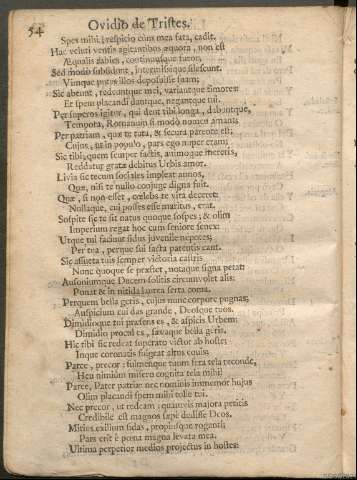 54
Ovidio de Tristes.
Spes mihi, respicio cùm mea fata, cadit.
Hac veluti ventis agitantibus æquora, non est
Æqualis rabies, continuusque furor:
Sed modò subsidunt, intermissique silescunt.
Vimque putes illos deposuisse suam;
Sic abeunt, redeuntque mei, variantque timores:
Et spem placandi dantque, negantque tui.
Per superos igitur, qui dent tibi longa, dabuntque,
Tempora, Romanum si modò nomen amant;
Per patriam, quæ te tuta, & secura parente est;
Cujus, ut in populo, pars ego nuper eram;
Sic tibi, quem semper factis, animoque mereris,
Reddatur gratæ debitus Urbis amor.
Livia sic tecum sociales impleat annos,
Quæ, nisi te nullo conjuge digna fuit.
Quæ, si non esset, cœlebs te vita deceret:
Nullaque, cui posses esse maritus, erat.
Sospite sic te sit natus quoque sospes; & olim
Imperium regat hoc cum seniore senex:
Utque tui faciunt sidus juvenile nepotes;
Per tua, perque sui facta parentis eant.
Sic assueta tuis semper victoria castris
Nunc quoque se præstet, notaque signa petat:
Ausoniumque Ducem solitis circumvolet alis:
Ponat & in nitida laurea serta coma.
Perquem bella geris, cujus nunc corpore pugnas;
Auspicium cui das grande, Deosque tuos.
Dimidioque tui præsens es, & aspicis Urbem:
Dimidio procul es, sævaque bella geris.
Hic tibi sic redeat superato victor ab hoste:
Inque coronatis fulgeat altus equis;
Parce, precor: fulmenque tuum fera tela reconde,
Heu nimium misero cognita tela mihi!
Parce, Pater patriæ: nec nominis immemor hujus
Olim placandi spem mihi tolle tui.
Nec precor, ut redeam; quamvis majora petitis
Credibile est magnos sæpè dedisse Deos.
Mitius exilium si das, propiusque roganti;
Pars erit è pœna magna levata mea.
Ultima perpetior medios projectus in hostes: